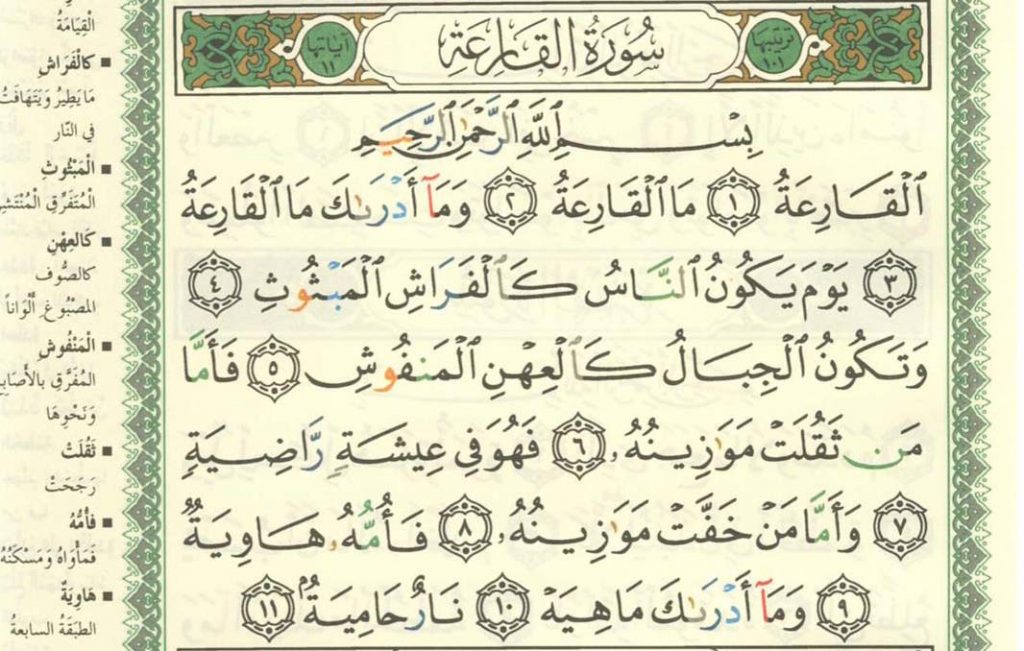 ترتيبها ١٠١
سُورَةُ القَارِعَةِ
آياتها ١١
بِسْمِ ٱللَّهِ ٱلرَّحْمَٰنِ ٱلرَّحِيمِ
ٱلْقَارِعَةُ ١ مَا ٱلْقَارِعَةُ ٢ وَمَآ أَدْرَىٰكَ مَا ٱلْقَارِعَةُ
٣ يَوْمَ يَكُونُ ٱلنَّاسُ كَٱلْفَرَاشِ ٱلْمَبْثُوثِ ٤
وَتَكُونُ ٱلْجِبَالُ كَٱلْعِهْنِ ٱلْمَنفُوشِ ٥ فَأَمَّا
مَن ثَقُلَتْ مَوَٰزِينُهُۥ ٦ فَهُوَ فِي عِيشَةٍ رَّاضِيَةٍ
٧ وَأَمَّا مَنْ خَفَّتْ مَوَٰزِينُهُۥ ٨ فَأُمُّهُۥ هَاوِيَةٌ
٩ وَمَآ أَدْرَىٰكَ مَا هِيَهْ ١٠ نَارٌ حَامِيَةٌۢ ١١
الْقِيَامَةُ
■ كَالْفَرَاشِ
مَا يَطِيرُ وَيَتَهَافَتُ
فِي النَّار
■ الْمَبْثُوثِ
الْمُتَفَرِّقِ
■ كَالْعِهْنِ
كالصُّوف
المصْبُوغِ ألْوَاناً
■ الْمَنْفُوشِ
المُفَرَّقِ
وَنَحْوِهَا
■ ثَقُلَتْ
رَجَحَتْ
■ فَأُمُّهُ
فَمَأوَاهُ وَمَسْكَنُهُ
■ هَاوِيَة
الطبَقَةُ السابعةُ